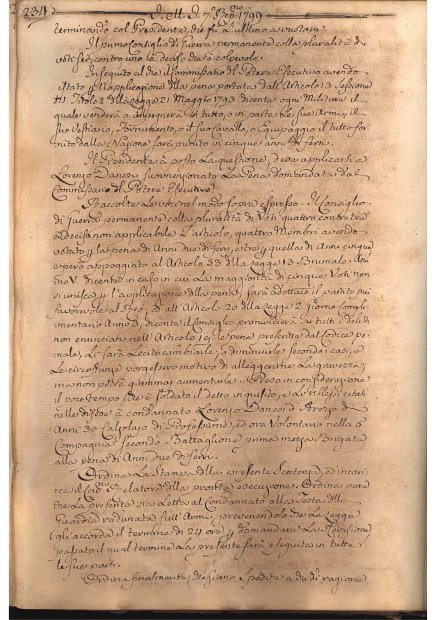 234
Dell. D. 7.º Sbre. 1799
terminando col Presidente, che fu l'ultimo a votare.
Il primo Consiglio di Guerra permanente colla pluralità di
voti sei contro uno ha deciso che è colpevole.
In seguito al che il Commissario del Potere Esecutivo avendo
l'applicazione della pena portata dall'Articolo 13 Sessione
Titolo della Legge 21 Maggio 1793. dicente ogni Militare il
quale venderà o impegnerà in tutto, o in parte le sue Armi, il
suo Vestiario, Fornimento, o il suo Cavallo, o Equipaggio il tutto for-
nito dalla Nazione sarà punito in cinque anni di ferri.
Il Presidente à posto la questione, deve applicarsi a
Lorenzo Danesi summenzionato la Pena domandata dal
Commissario del Potere Esecutivo.
Raccolte le voci nel modo sopra espresso. Il Consiglio
di Guerra permanente colla pluralità di Voti quattro contro tre
decise non applicabile l'articolo, quattro Membri avendo
votato per la pena di Anni due di ferri, e tre per quella di Anni cinque
e però appoggiato al Articolo 33 della legge 13. Brumale An-
no V. dicente in caso in cui la maggiorità di cinque Voti non
si unisca per l'applicazione della pena, sarà adottato il partito più
favorevole al Reo, e all'Articolo 20 della Legge 2 Giorno comple-
mentario Anno 3. dicente il Consiglio pronuncierà su tutti i delitti
non enunciati nell'Articolo 19 le pene prescritte dal Codice pe-
nale, li sarà lecito cambiarle, o diminuirle secondo i casi, o
le circostanze porgessero motivo di alleggerirne la gravezza,
ma non potrà giammai aumentarle. Preso in considerazione
il poco tempo che è soldato il detto inquisito, e le riflessi citati
nelle difese à condannato Lorenzo Danesi di Arezzo di
Anni 30 Calzolaio di Professione, ed ora Volontario nella 5
Compagnia secondo Battaglione prima mezza Brigata
alla pena di Anni due di ferri.
Ordina la Stampa della presente Sentenza, ed incari-
ca il Relatore della pronta esecuzione. Ordina pure
che la presente sia letta al Condannato alla Testa della
Guardia radunata sull'Armi, prevenendolo che la Legge
gli accorda il termine di 24 ore per domandare la Revisione
passato il qual termine la presente sarà eseguita in tutte
le sue parti.
Ordina finalmente, che siano spedite a chi di ragione